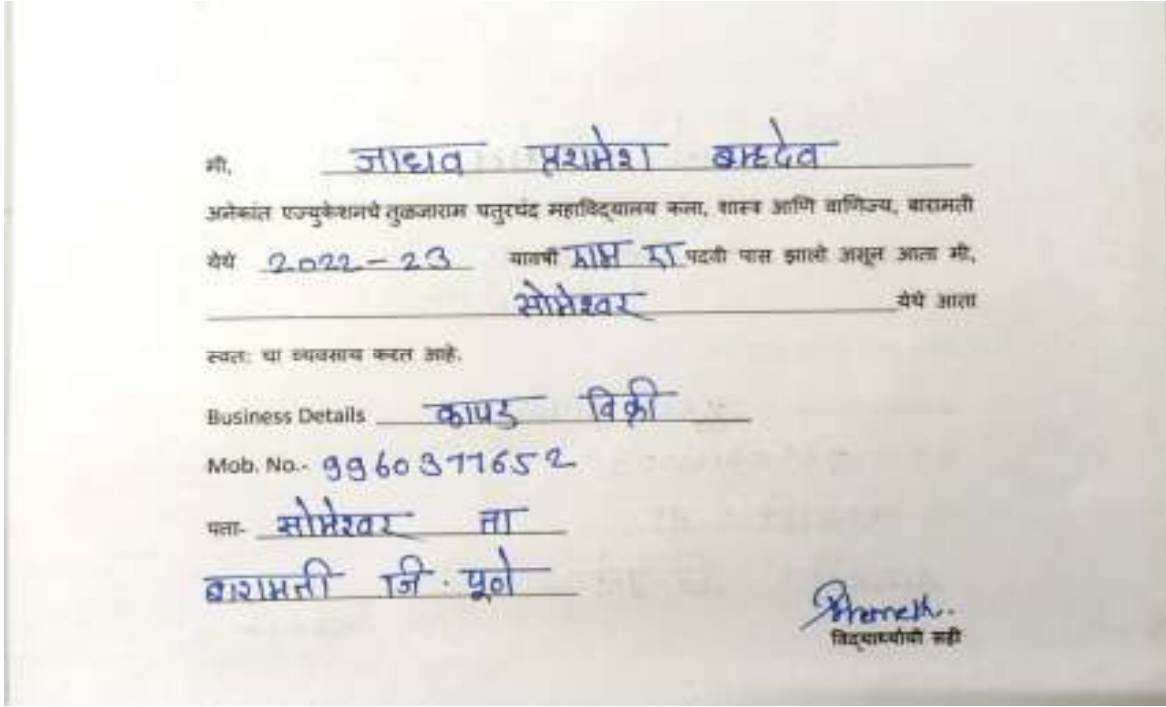 मी, जाधव प्रथमेश ब्रम्हदेव
अनेकांत एज्युकेशनचे तुळजाराम चतुरचंद महाविद्यालय कला, शास्त्र आणि वाणिज्य, बारामती
येथे 2022-23 यावर्षी पदवी पास झालो असून आता मी,
सोमेश्वर येथे आता
स्वतः चा व्यवसाय करत आहे.
Business Details कापड विक्री
Mob. No.- 9960377652
पत्ता- सोमेश्वर ता
बारामती जि. पूणे
विद्यार्थ्याची सही